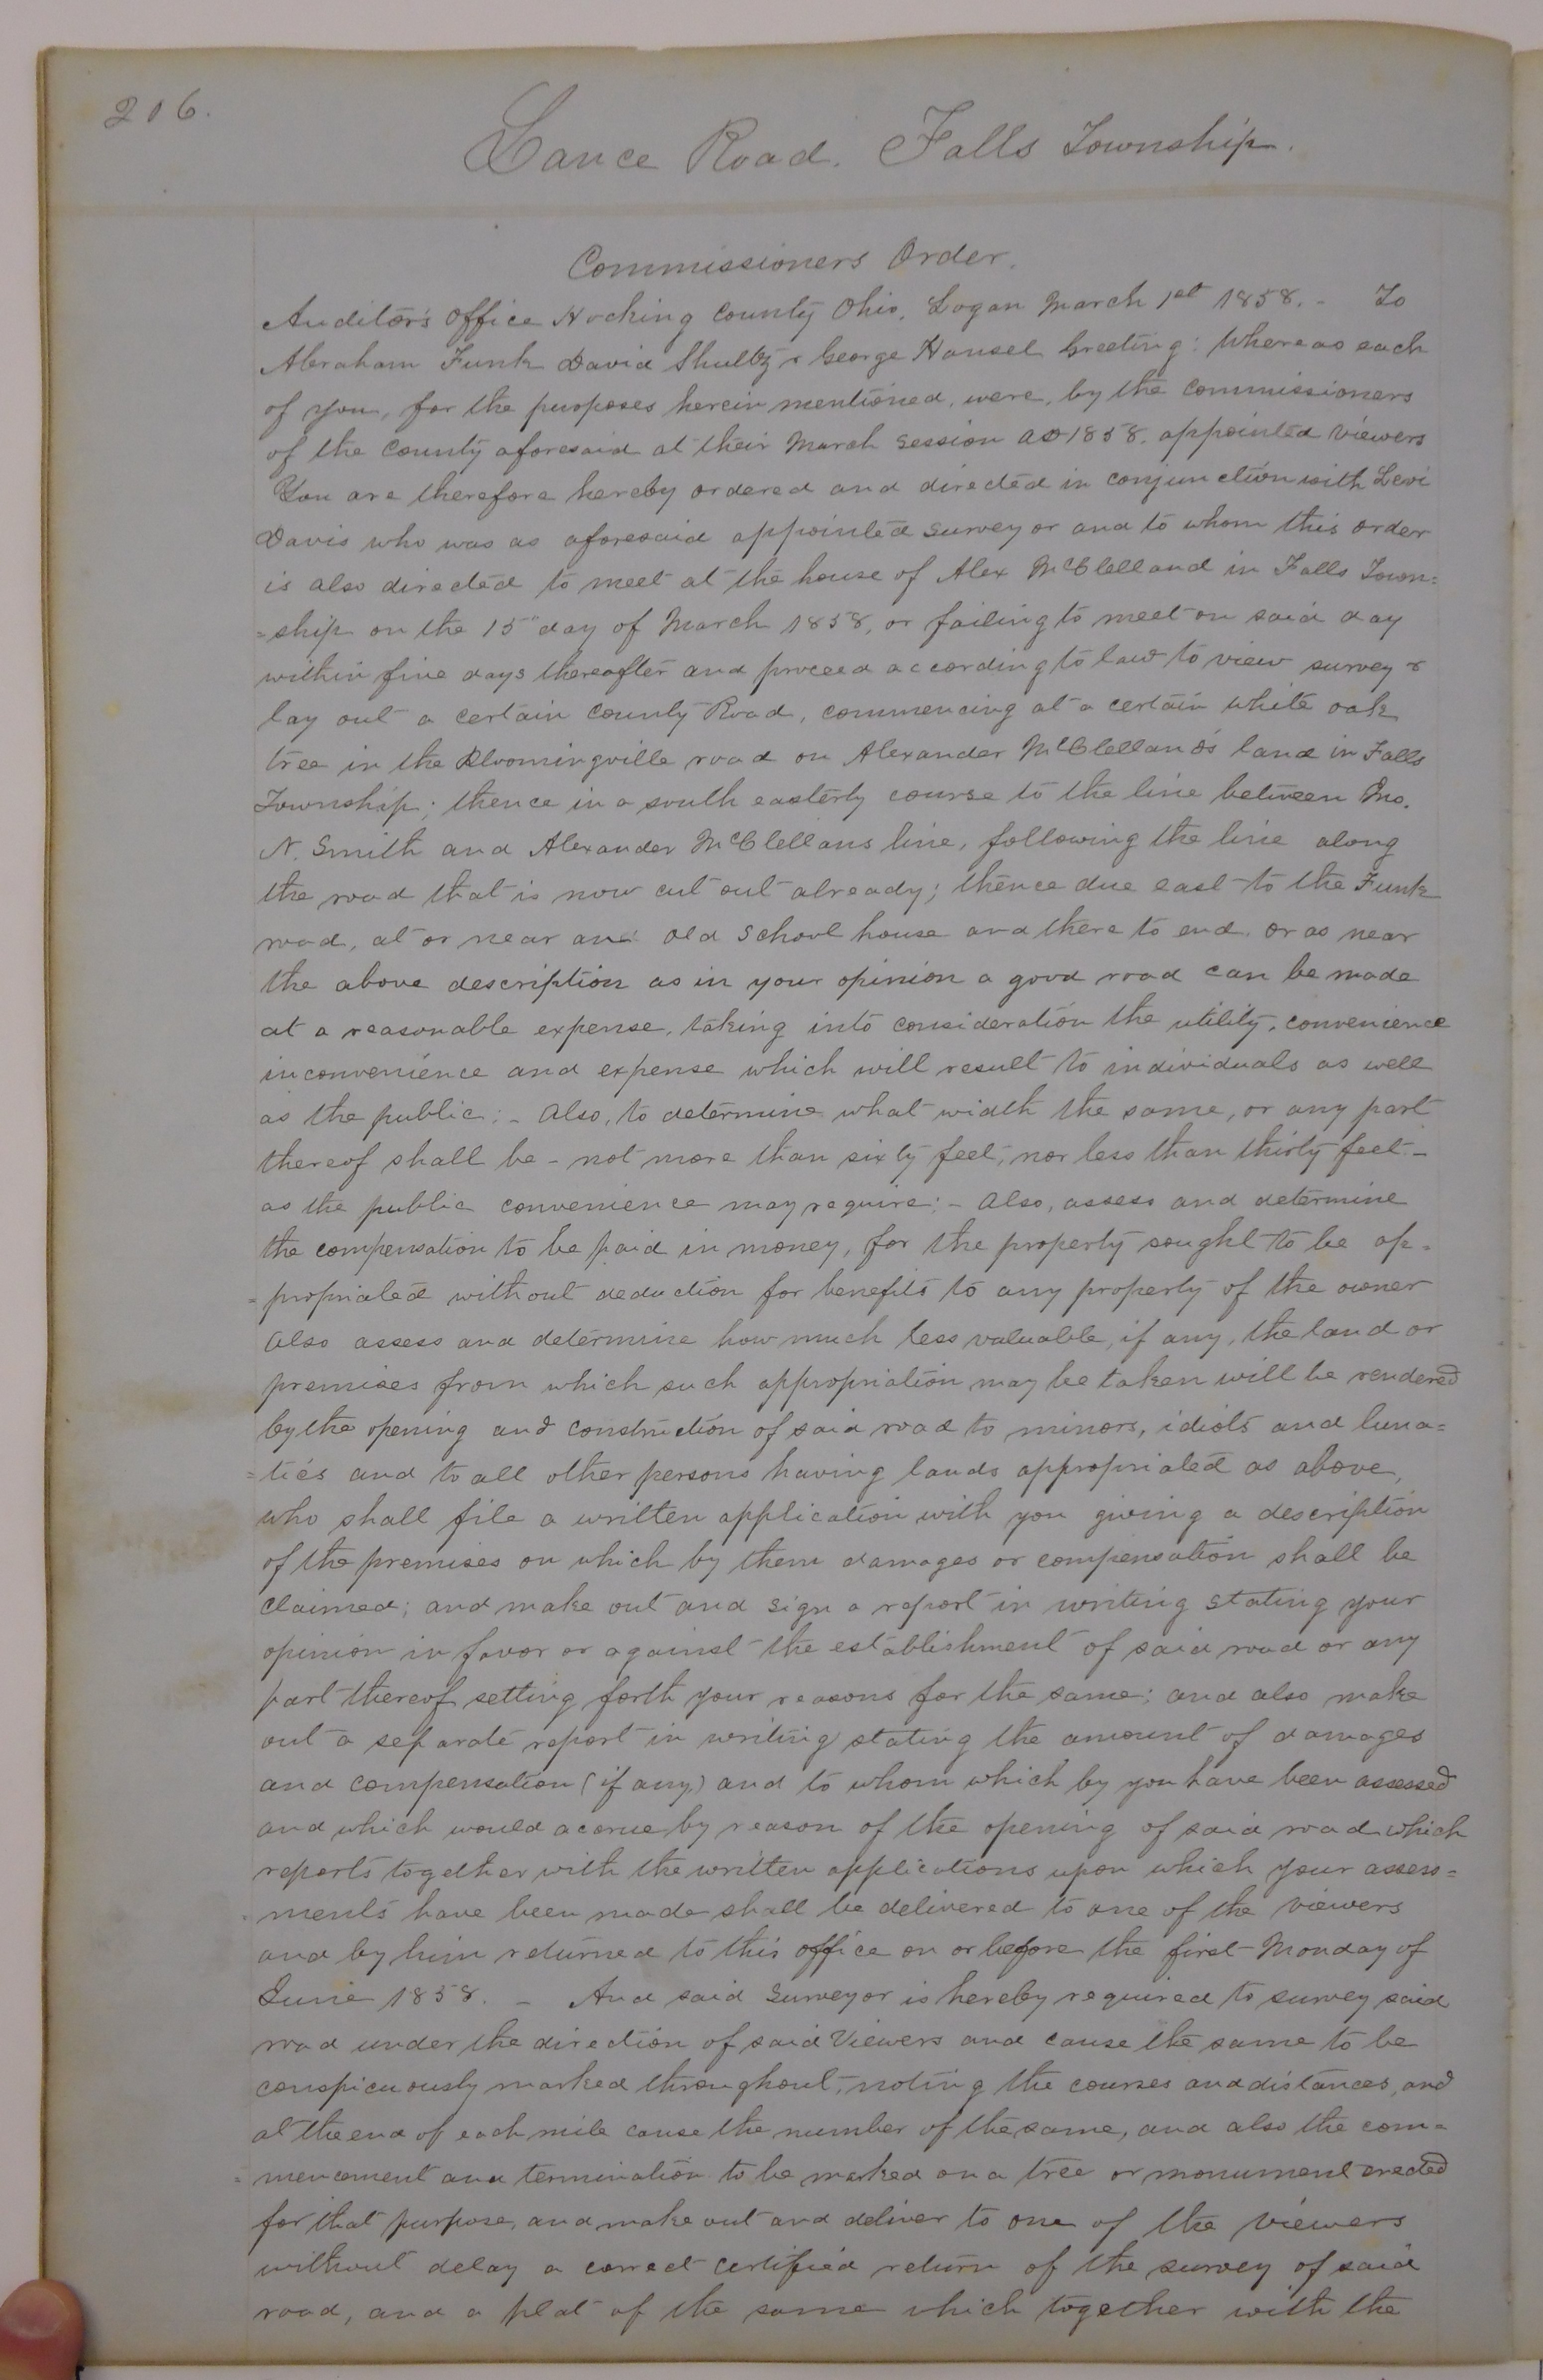 206.
Lance Road. Falls Township.
Commissioners Order.
Auditor's Office Hocking County Ohio, Logan March 1st 1858. - To
Abraham Funk David Shultz & George Hansel Greeting: Whereas each
of you, for the purposes herein mentioned, were, by the Commissioners
of the County aforesaid at their March Session AD 1858. appointed Viewers
You are therefore hereby ordered and directed in conjunction with Levi
Davis who was as aforesaid appointed Surveyor and to whom this order
is also directed to meet at the house of Alex McClelland in Falls Town=
=ship on the 15" day of March 1858, or failing to meet on said day
within five days thereafter and proceed according to law to view survey &
lay out a certain County Road, commencing at a certain white oak
tree in the Bloomingville road on Alexander McClelland's land in Falls
Township; thence in a south easterly course to the line between Jno.
N. Smith and Alexander McClellans line, following the line along
the road that is now cut out already; thence due east to the Funk
road, at or near an old School house and there to end. or as near
the above description as in your opinion a good road can be made
at a reasonable expense, taking into consideration the utility, convenience
inconvenience and expense which will result to individuals as well
as the public; - Also, to determine what width the same, or any part
thereof shall be - not more than sixty feet, nor less than thirty feet -
as the public convenience may require; - Also, assess and determine
the compensation to be paid in money, for the property sought to be ap=
=propriated without deduction for benefits to any property of the owner
Also assess and determine how much less valuable, if any, the land or
premises from which such appropriation may be taken will be rendered
by the opening and construction of said road to minors, idiots and luna=
=tics and to all other persons having lands appropriated as above,
who shall file a written application with you giving a description
of the premises on which by them damages or compensation shall be
claimed; and make out and sign a report in writing stating your
opinion in favor or against the establishment of said road or any
part thereof setting forth your reasons for the same; and also make
out a separate report in writing stating the amount of damages
and compensation (if any) and to whom which by you have been assessed
and which would accrue by reason of the opening of said road which
reports together with the written applications upon which your assess=
ments have been made shall be delivered to one of the viewers
and by him returned to this office on or before the first Monday of
June 1858. - And said Surveyor is hereby required to survey said
road under the direction of said Viewers and cause the same to be
conspicuously marked throughout, noting the courses and distances, and
at the end of each mile cause the number of the same, and also the com=
=mencement and termination to be marked on a tree or monument erected
for that purpose, and make out and deliver to one of the viewers
without delay a correct certified return of the survey of said
road, and a plat of the same which together with the